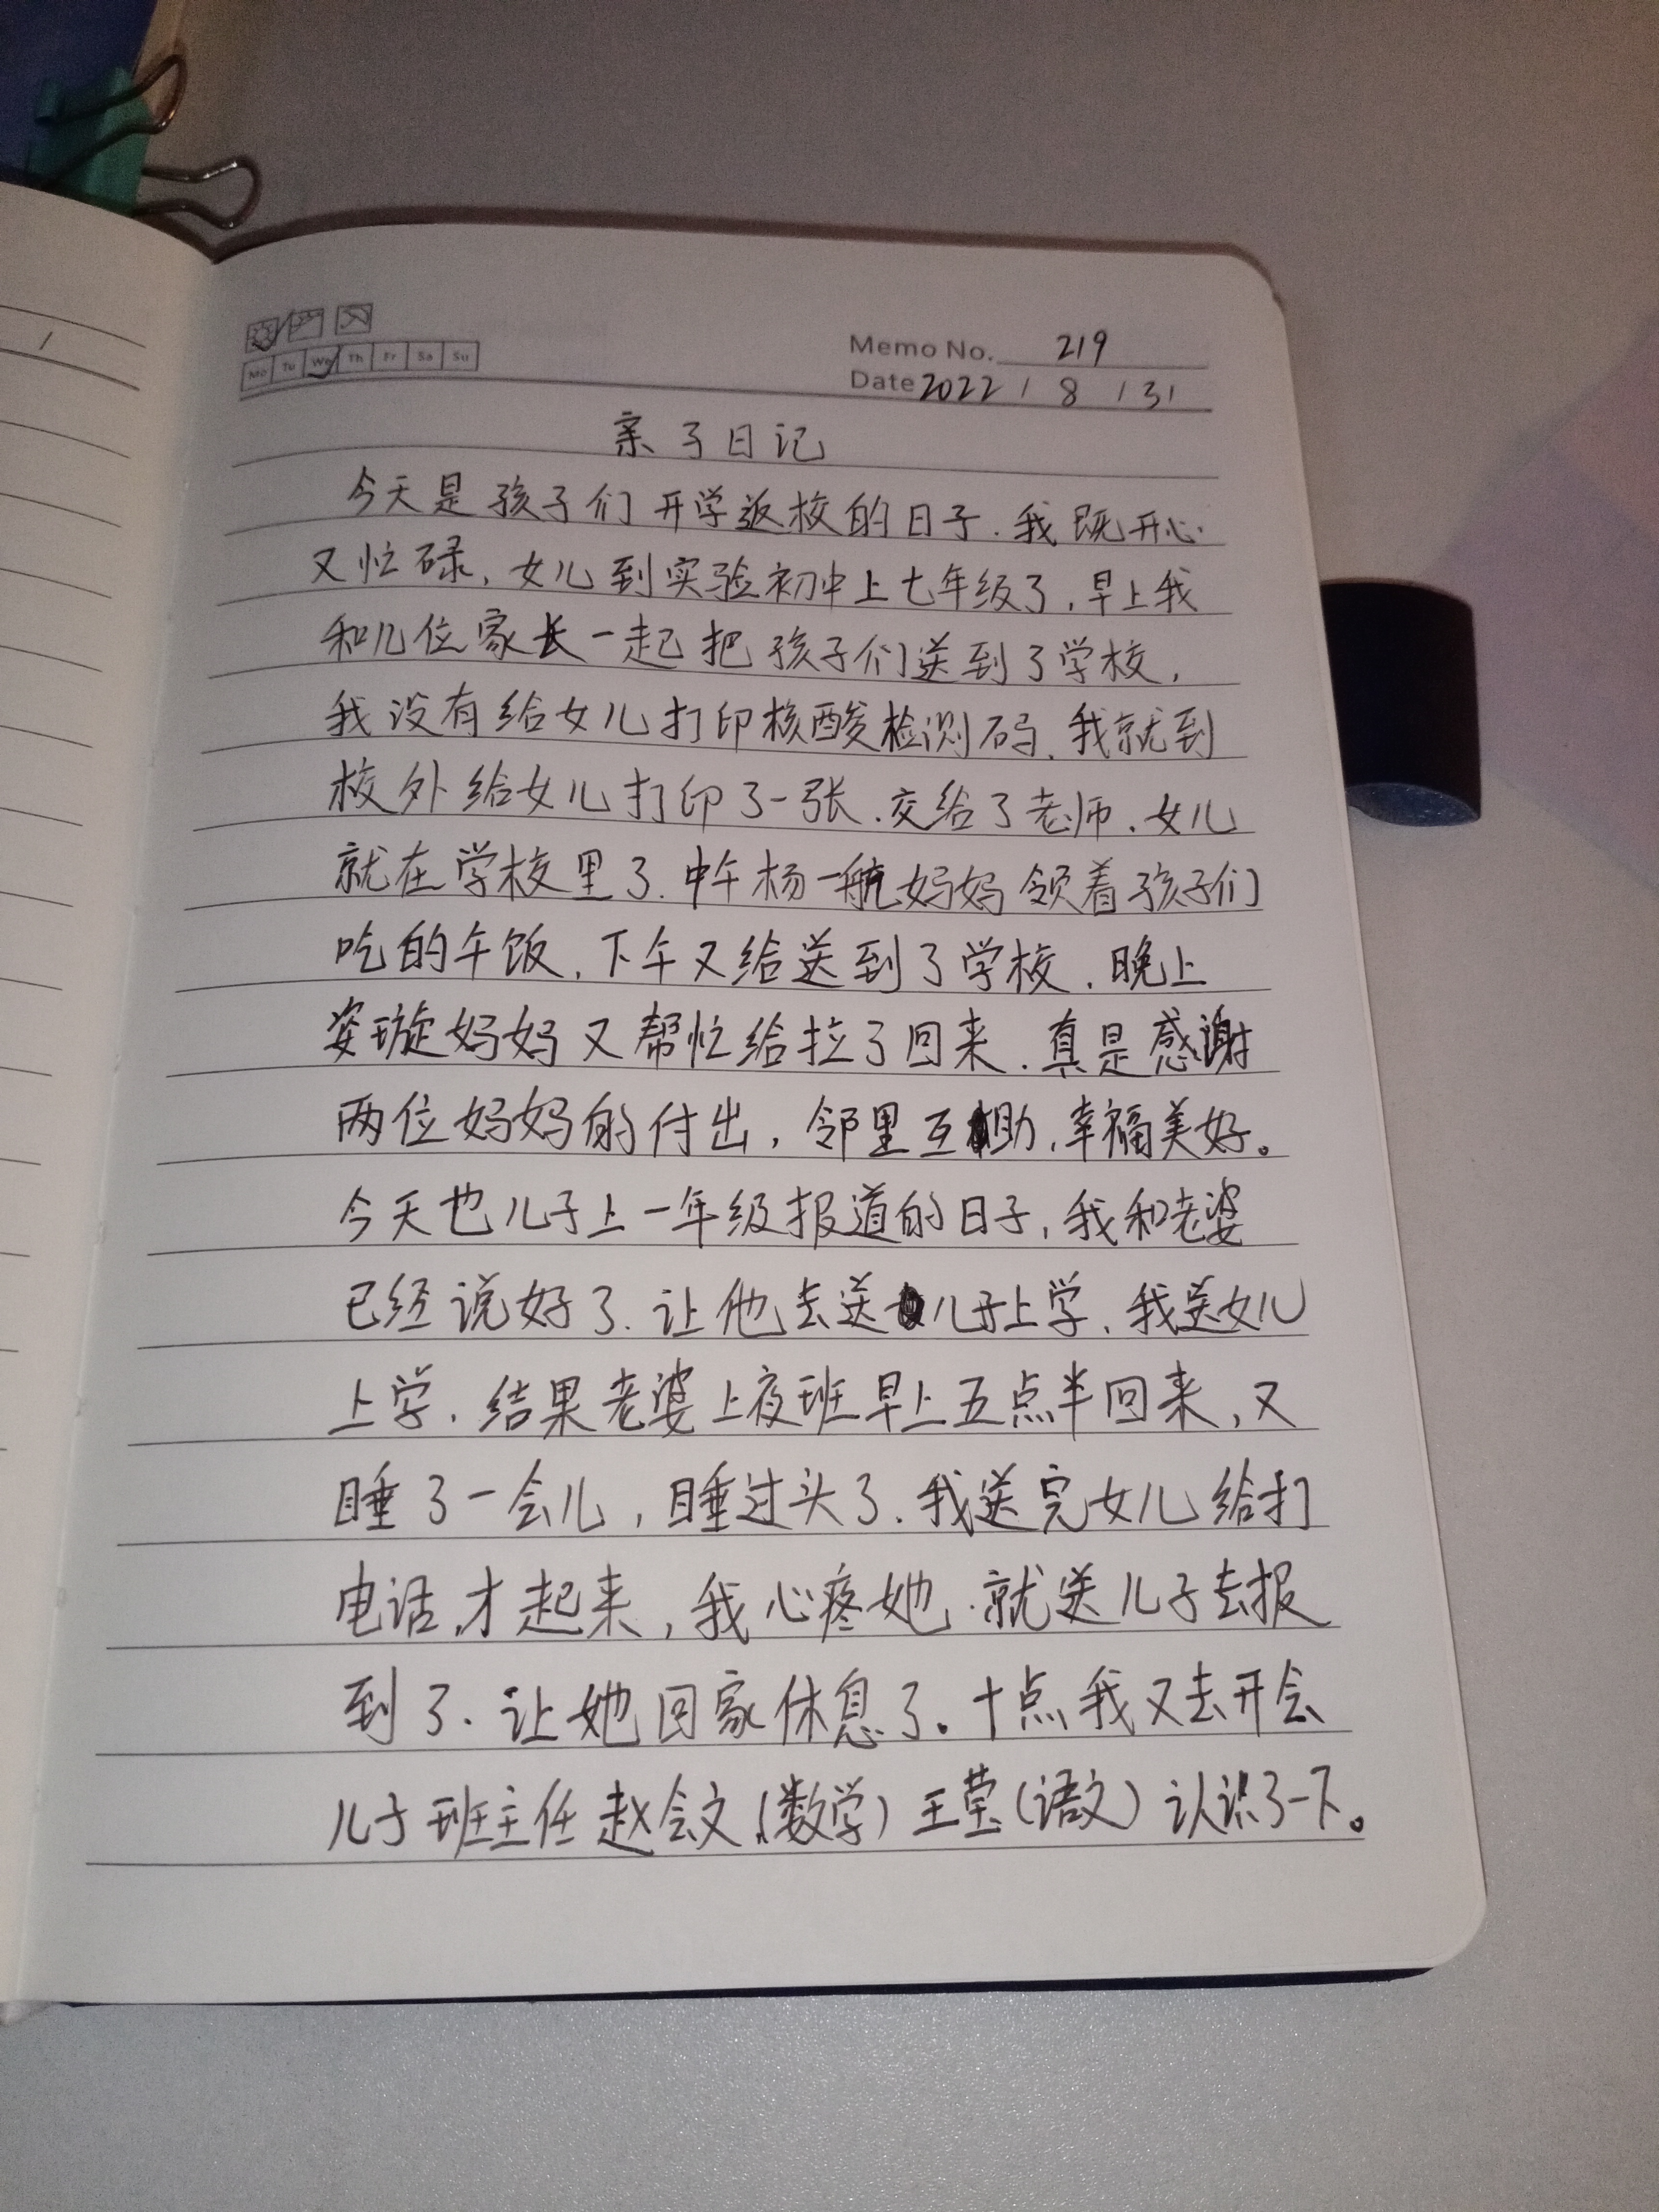 Mo Tu We Th Fr Sa Su
Memo No. 219
Date 2022 / 8 / 31
亲子日记
今天是孩子们开学返校的日子.我既开心
又忙碌,女儿到实验初中上七年级了,早上我
和几位家长一起把孩子们送到了学校,
我没有给女儿打印核酸检测码、我就到
校外给女儿打印了一张.交给了老师.女儿
就在学校里了.中午杨一航妈妈领着孩子们
吃的午饭,下午又给送到了学校.晚上
姿璇妈妈又帮忙给拉了回来.真是感谢
两位妈妈的付出,邻里互助,幸福美好。
今天也儿子上一年级报道的日子,我和老婆
已经说好了.让他去送儿子上学、我送女儿
上学.结果老婆上夜班早上五点半回来,又
睡了一会儿,睡过头了.我送完女儿给打
电话,才起来,我心疼她.就送儿子去报
到了.让她回家休息了。十点我又去开会
儿子班主任赵会文(数学)王莹(语文)认识了一下。